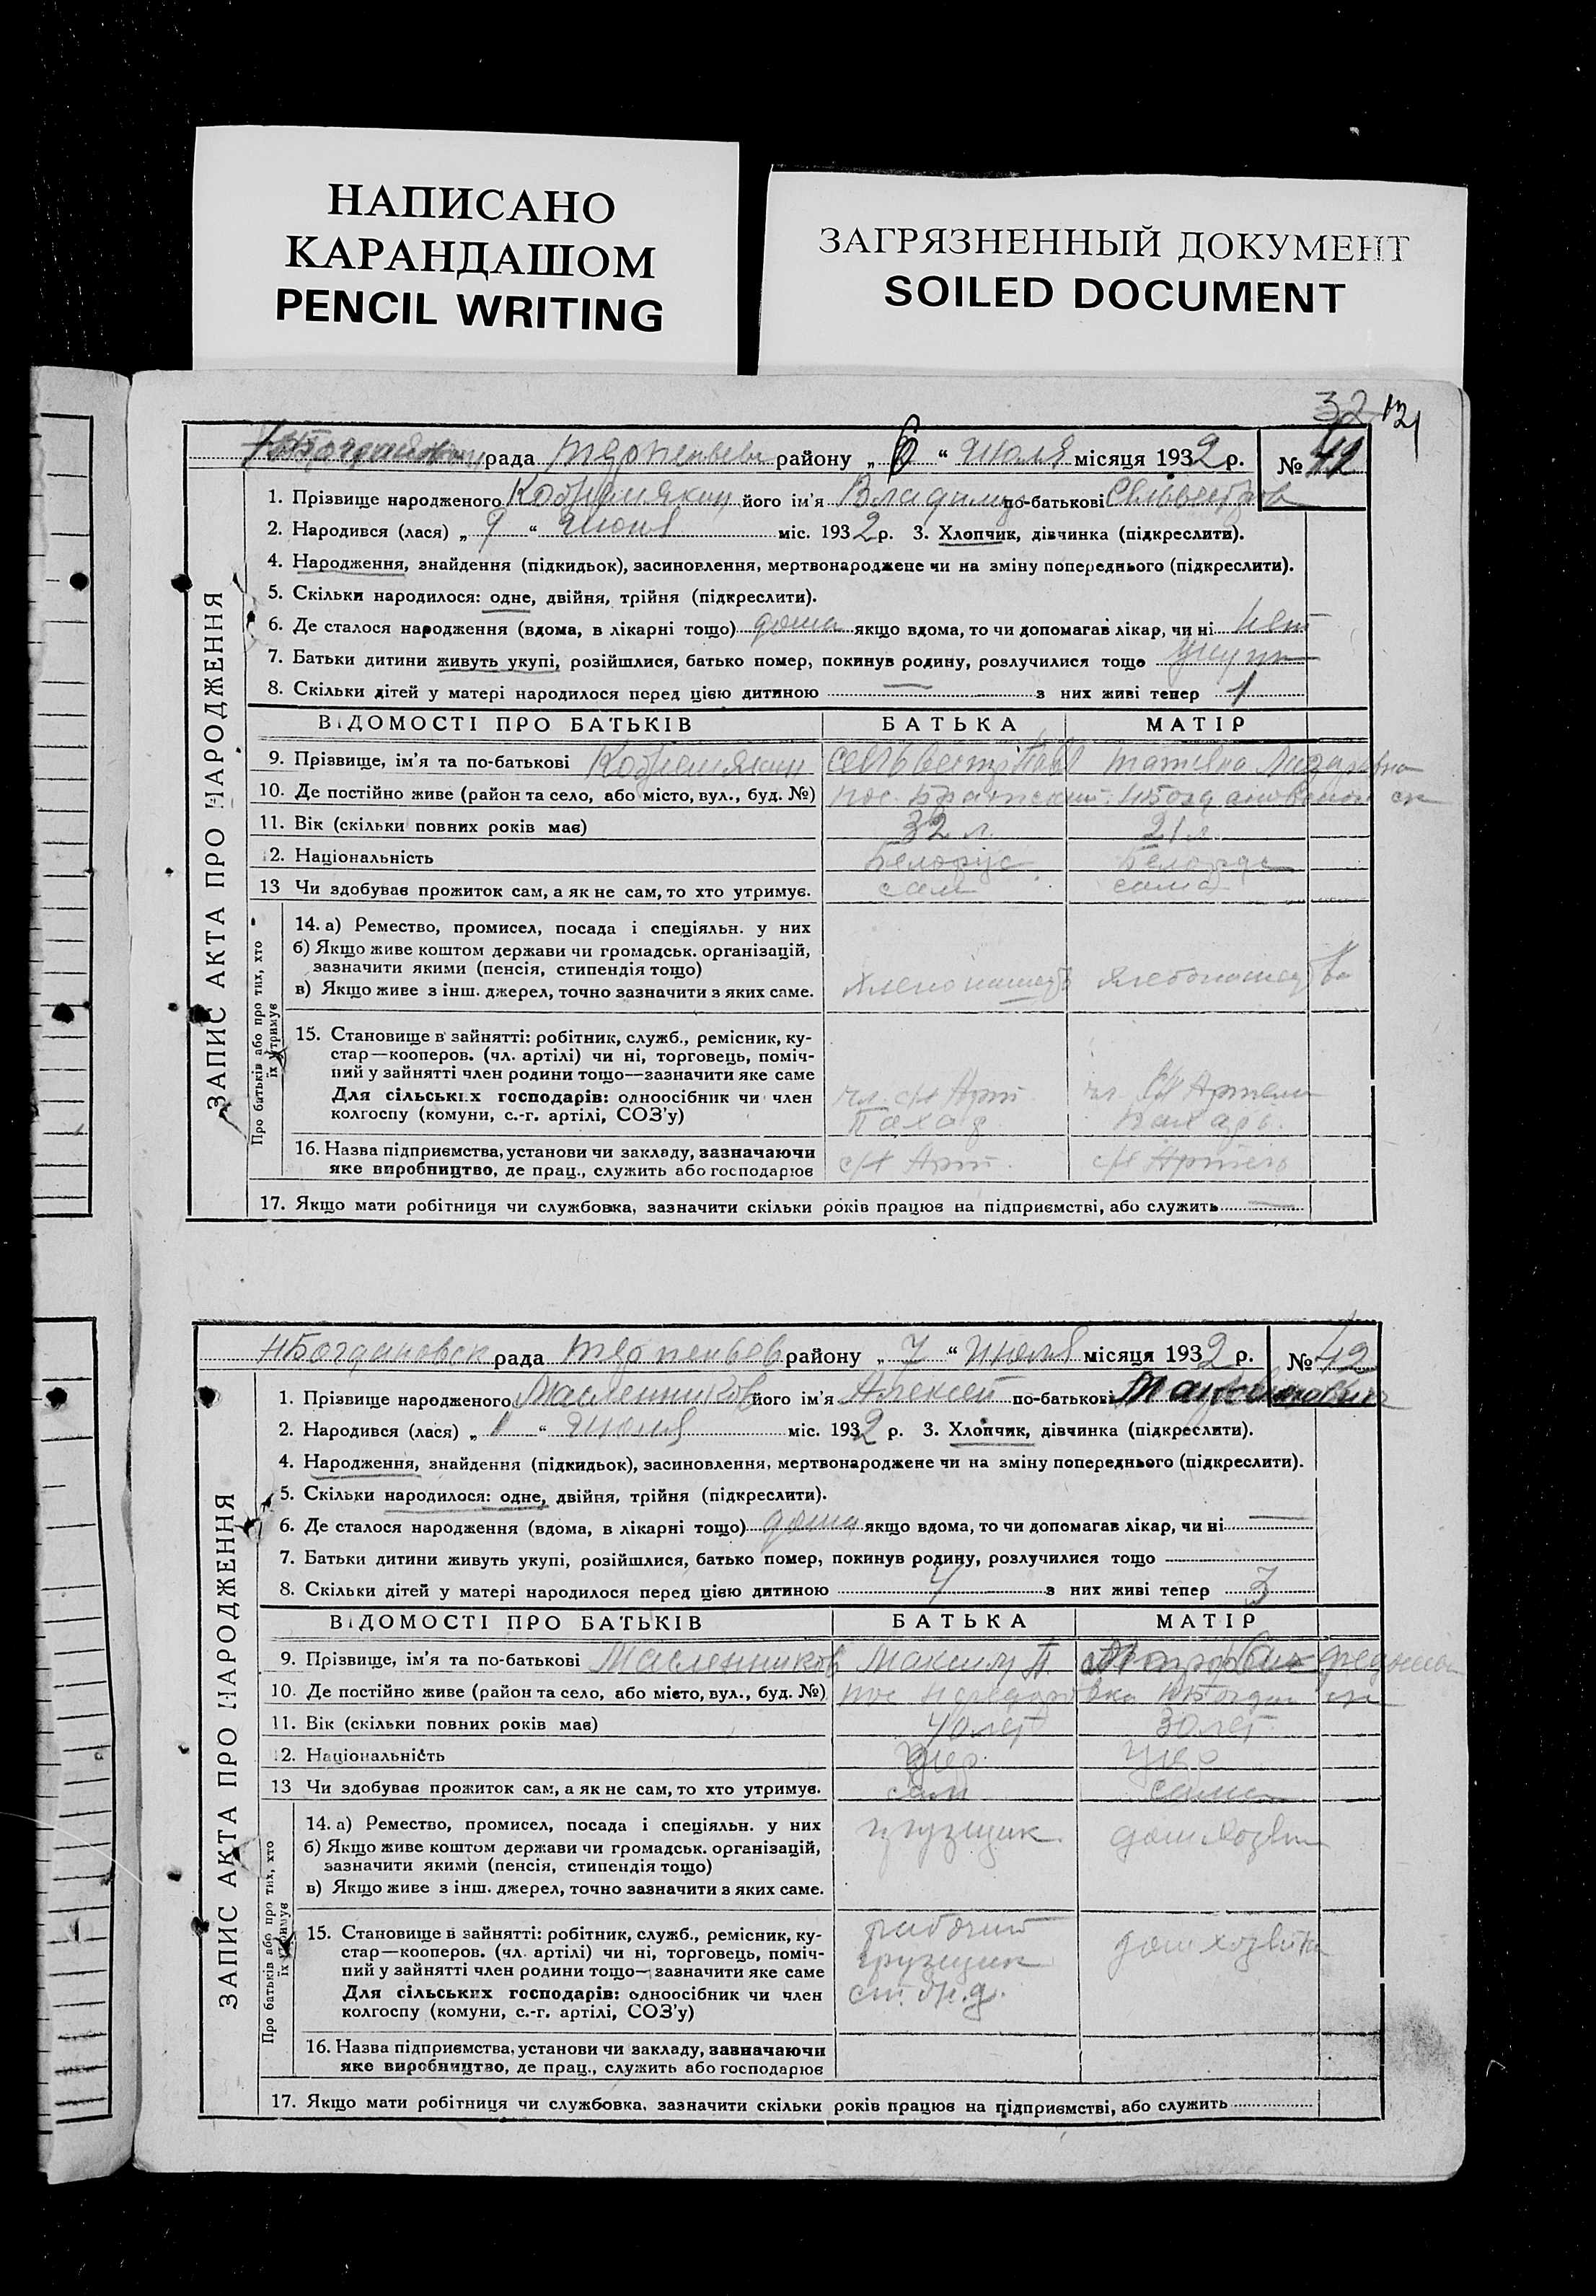 НАПИСАНО
КАРАНДАШОМ
PENCIL WRITING
ЗАГРЯЗНЕННЫЙ ДОКУМЕНТ
SOILED DOCUMENT
32
ЗАПИС АКТА ПРО НАРОДЖЕННЯ
рада району „ 6 “ июля місяця 1932 р. №
1. Прізвище народженого його ім'я Владимир по-батькові
2. Народився (лася) „ 9 “ июня міс. 1932 р. 3. Хлопчик, дівчинка (підкреслити).
4. Народження, знайдення (підкидьок), засиновлення, мертвонароджене чи на зміну попереднього (підкреслити).
5. Скільки народилося: одне, двійня, трійня (підкреслити).
6. Де сталося народження (вдома, в лікарні тощо) дома якщо вдома, то чи допомагав лікар, чи ні нет
7. Батьки дитини живуть укупі, розійшлися, батько помер, покинув родину, розлучилися тощо
8. Скільки дітей у матері народилося перед цією дитиною — з них живі тепер 1
ВІДОМОСТІ ПРО БАТЬКІВ БАТЬКА МАТІР
9. Прізвище, ім'я та по-батькові Татьяна Лазаровна
10. Де постійно живе (район та село, або місто, вул., буд. №) пос. Братский
11. Вік (скільки повних років має) 32 л. 21 л.
12. Національність Белорус Белорус
13 Чи здобував прожиток сам, а як не сам, то хто утримує. сам сама
Про батьків або про тих, хто їх утримує
14. а) Ремество, промисел, посада і спеціяльн. у них
б) Якщо живе коштом держави чи громадськ. організацій,
зазначити якими (пенсія, стипендія тощо)
в) Якщо живе з інш. джерел, точно зазначити з яких саме.
15. Становище в зайнятті: робітник, служб., ремісник, ку-
стар—кооперов. (чл. артілі) чи ні, торговець, поміч-
ний у зайнятті член родини тощо—зазначити яке саме
Для сільських господарів: одноосібник чи член
колгоспу (комуни, с.-г. артілі, СОЗ'у)
чл. с/х Арт. чл. с/х Артели
Пахар Пахарь.
16. Назва підприємства, установи чи закладу, зазначаючи
яке виробництво, де прац., служить або господарює
с/х Арт. с/х Артель
17. Якщо мати робітниця чи службовка, зазначити скільки років працює на підприємстві, або служить —
ЗАПИС АКТА ПРО НАРОДЖЕННЯ
НБогдановск рада району „ 7 “ июля місяця 1932 р. № 42
1. Прізвище народженого Масленников його ім'я Алексей по-батькові Максимович
2. Народився (лася) „ 1 “ июня міс. 1932 р. 3. Хлопчик, дівчинка (підкреслити).
4. Народження, знайдення (підкидьок), засиновлення, мертвонароджене чи на зміну попереднього (підкреслити).
5. Скільки народилося: одне, двійня, трійня (підкреслити).
6. Де сталося народження (вдома, в лікарні тощо) дома якщо вдома, то чи допомагав лікар, чи ні —
7. Батьки дитини живуть укупі, розійшлися, батько помер, покинув родину, розлучилися тощо
8. Скільки дітей у матері народилося перед цією дитиною 4 з них живі тепер 3
ВІДОМОСТІ ПРО БАТЬКІВ БАТЬКА МАТІР
9. Прізвище, ім'я та по-батькові Масленников Максим П
10. Де постійно живе (район та село, або місто, вул., буд. №) пос
11. Вік (скільки повних років має) 40 лет 30 лет
12. Національність Укр Укр
13 Чи здобував прожиток сам, а як не сам, то хто утримує. сам сама
Про батьків або про тих, хто їх утримує
14. а) Ремество, промисел, посада і спеціяльн. у них
б) Якщо живе коштом держави чи громадськ. організацій,
зазначити якими (пенсія, стипендія тощо)
в) Якщо живе з інш. джерел, точно зазначити з яких саме.
грузщик
15. Становище в зайнятті: робітник, служб., ремісник, ку-
стар—кооперов. (чл. артілі) чи ні, торговець, поміч-
ний у зайнятті член родини тощо—зазначити яке саме
Для сільських господарів: одноосібник чи член
колгоспу (комуни, с.-г. артілі, СОЗ'у)
рабочий
грузщик
16. Назва підприємства, установи чи закладу, зазначаючи
яке виробництво, де прац., служить або господарює
17. Якщо мати робітниця чи службовка, зазначити скільки років працює на підприємстві, або служить